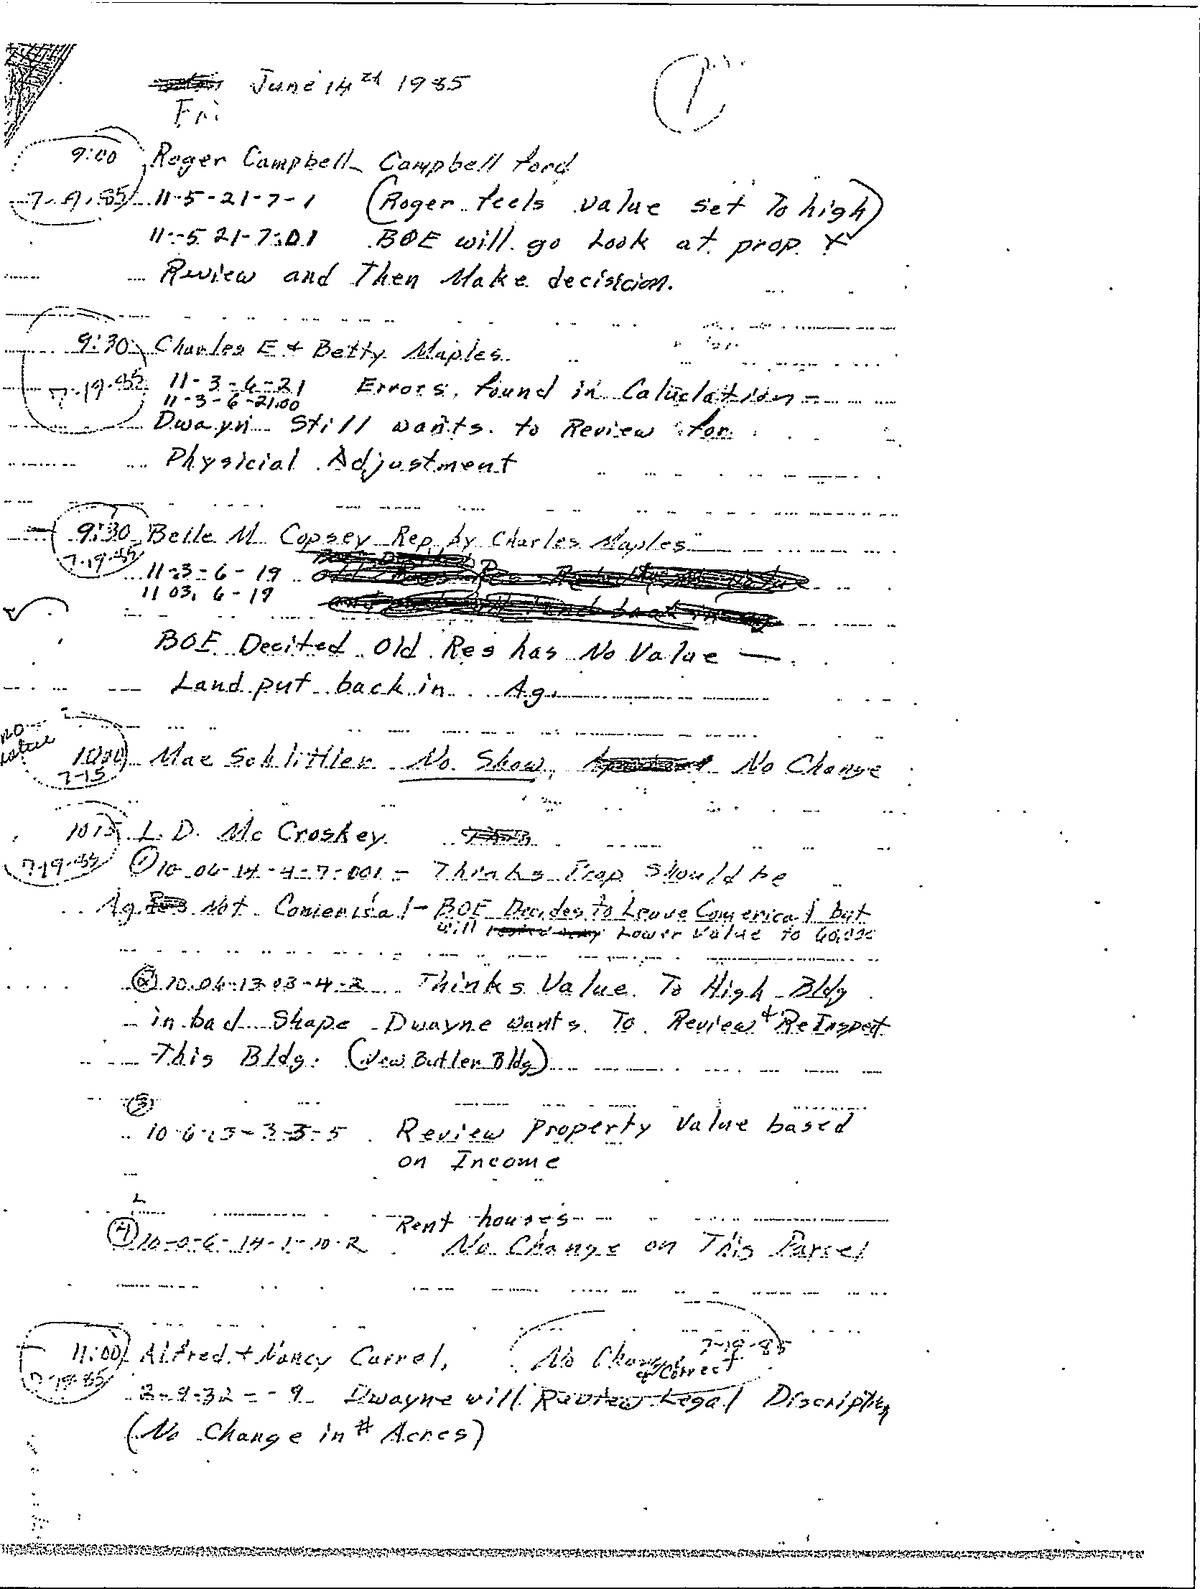 June 14th 1985
Fri
1
9:00 Roger Campbell - Campbell Ford
7-9-85 11-5-21-7-1 (Roger feels value set To high)
11-5 21-7.01 BOE will go Look at prop. &
Review and Then Make decisicion.
9:30 Charles E + Betty Maples
7-19-85 11-3-6-21 Errors found in Caluclation -
11-3-6-21.00
Dwayn Still wants to Review for
Physicial Adjustment
9:30 Belle M Copsey Rep by Charles Maples
7-19-85
11-3-6-19
11 03. 6-19
BOE Decited Old Res has No Value —
Land put back in Ag.
No
Value
10:00 Mae Schlittler No Show, No Change
7-15
10:15 L. D. McCroskey
7-19-85 ① 10-06-14-4-7-001 - Thinks Prop Should be
Ag Not Comerical - BOE Decides to Leave Comerical but
will Lower Value to 60,000
② 10.06-13-03-4-2 Thinks Value To High Bldg
in bad Shape - Dwayne wants To Review + ReInspect
This Bldg. (New Butler Bldg)
③
10-6-13-3-3-5 Review Property Value based
on Income
Rent houses
④ 10-0-6-14-1-10-2 No Change on This Parcel
11:00 Alfred + Nancy Currel, No Change 7-19-85
7-19-85 & Correct
2-9-32 - - 9 Dwayne will Review Legal Discription
(No Change in # Acres)